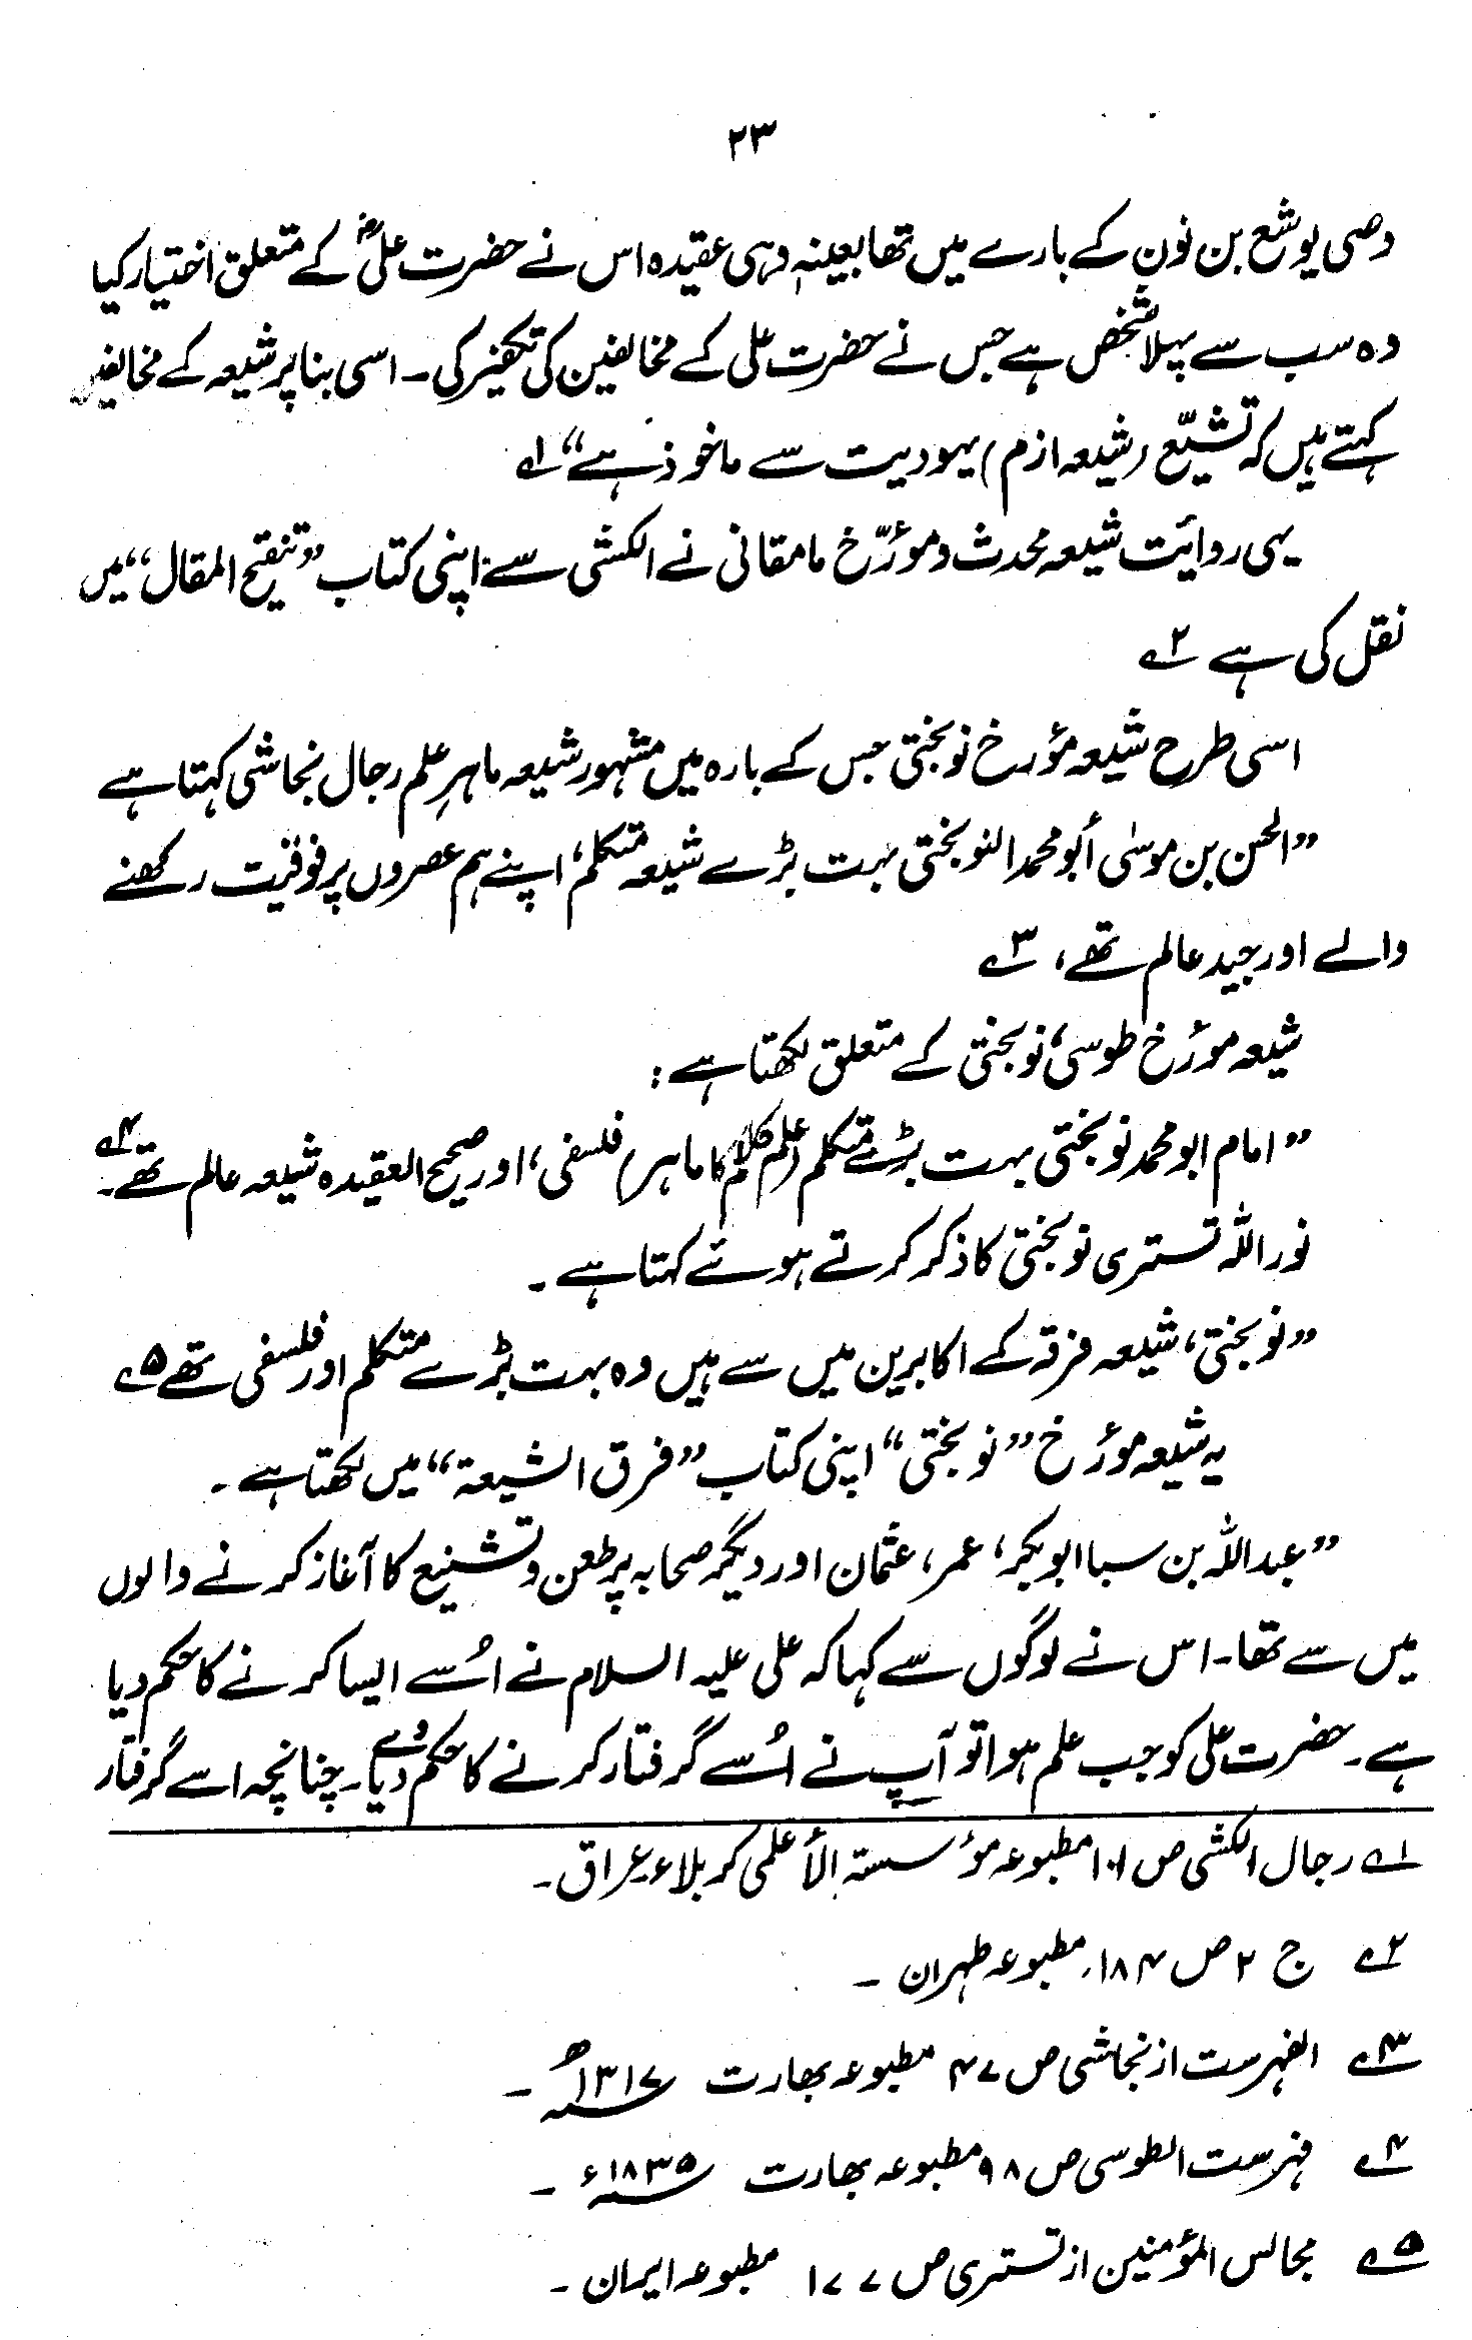 ۲۳
وصی یوشع بن نون کے بارے میں تھا بعینہٖ وہی عقیدہ اس نے حضرت علیؓ کے متعلق اختیار کیا
وہ سب سے پہلا شخص ہے جس نے حضرت علی کے مخالفین کی تکفیر کی۔ اسی بنا پر شیعہ کے مخالفین
کہتے ہیں کہ تشیّع (شیعہ ازم) یہودیت سے ماخوذ ہے“ ۱ے
یہی روائیت شیعہ محدث و موُرّخ مامقانی نے الکشی سے اپنی کتاب ”تنقیح المقال“ میں
نقل کی ہے ۲ے
اسی طرح شیعہ موُرخ نوبختی جس کے بارہ میں مشہور شیعہ ماہرِ علم رجال نجاشی کہتا ہے
”الحسن بن موسٰی أبو محمد النوبختی بہت بڑے شیعہ متکلم، اپنے ہم عصروں پر فوقیت رکھنے
والے اور جید عالم تھے، ۳ے
شیعہ موُرخ طوسی، نوبختی کے متعلق لکھتا ہے:
”امام ابو محمد نوبختی بہت بڑے متکلم (علم کلام کا ماہر) فلسفی، اور صحیح العقیدہ شیعہ عالم تھے۔ ۴ے
نور اللہ تستری نوبختی کا ذکر کرتے ہوئے کہتا ہے۔
”نوبختی، شیعہ فرقہ کے اکابرین میں سے ہیں وہ بہت بڑے متکلم اور فلسفی تھے ۵ے
یہ شیعہ موُرخ ”نوبختی“ اپنی کتاب ”فرق الشیعۃ“ میں لکھتا ہے۔
”عبداللہ بن سبا ابوبکر، عمر، عثمان اور دیگر صحابہ پر طعن و تشنیع کا آغاز کرنے والوں
میں سے تھا۔ اس نے لوگوں سے کہا کہ علی علیہ السلام نے اُسے ایسا کرنے کا حکم دیا
ہے۔ حضرت علی کو جب علم ہوا تو آپ نے اُسے گرفتار کرنے کا حکم دے دیا۔ چنانچہ اسے گرفتار
۱ے رجال الکشی ص ۱۰۱ مطبوعہ موُسستہ الأعلمی کربلاء عراق۔
۲ے ج ۲ ص ۱۸۴، مطبوعہ طہران۔
۳ے الفہرست از نجاشی ص ۴۷ مطبوعہ بھارت ۱۳۱۷ھ۔
۴ے فہرست الطوسی ص ۹۸ مطبوعہ بھارت ۱۸۳۵ء۔
۵ے مجالس الموُمنین از تستری ص ۱۷۷ مطبوعہ ایران۔